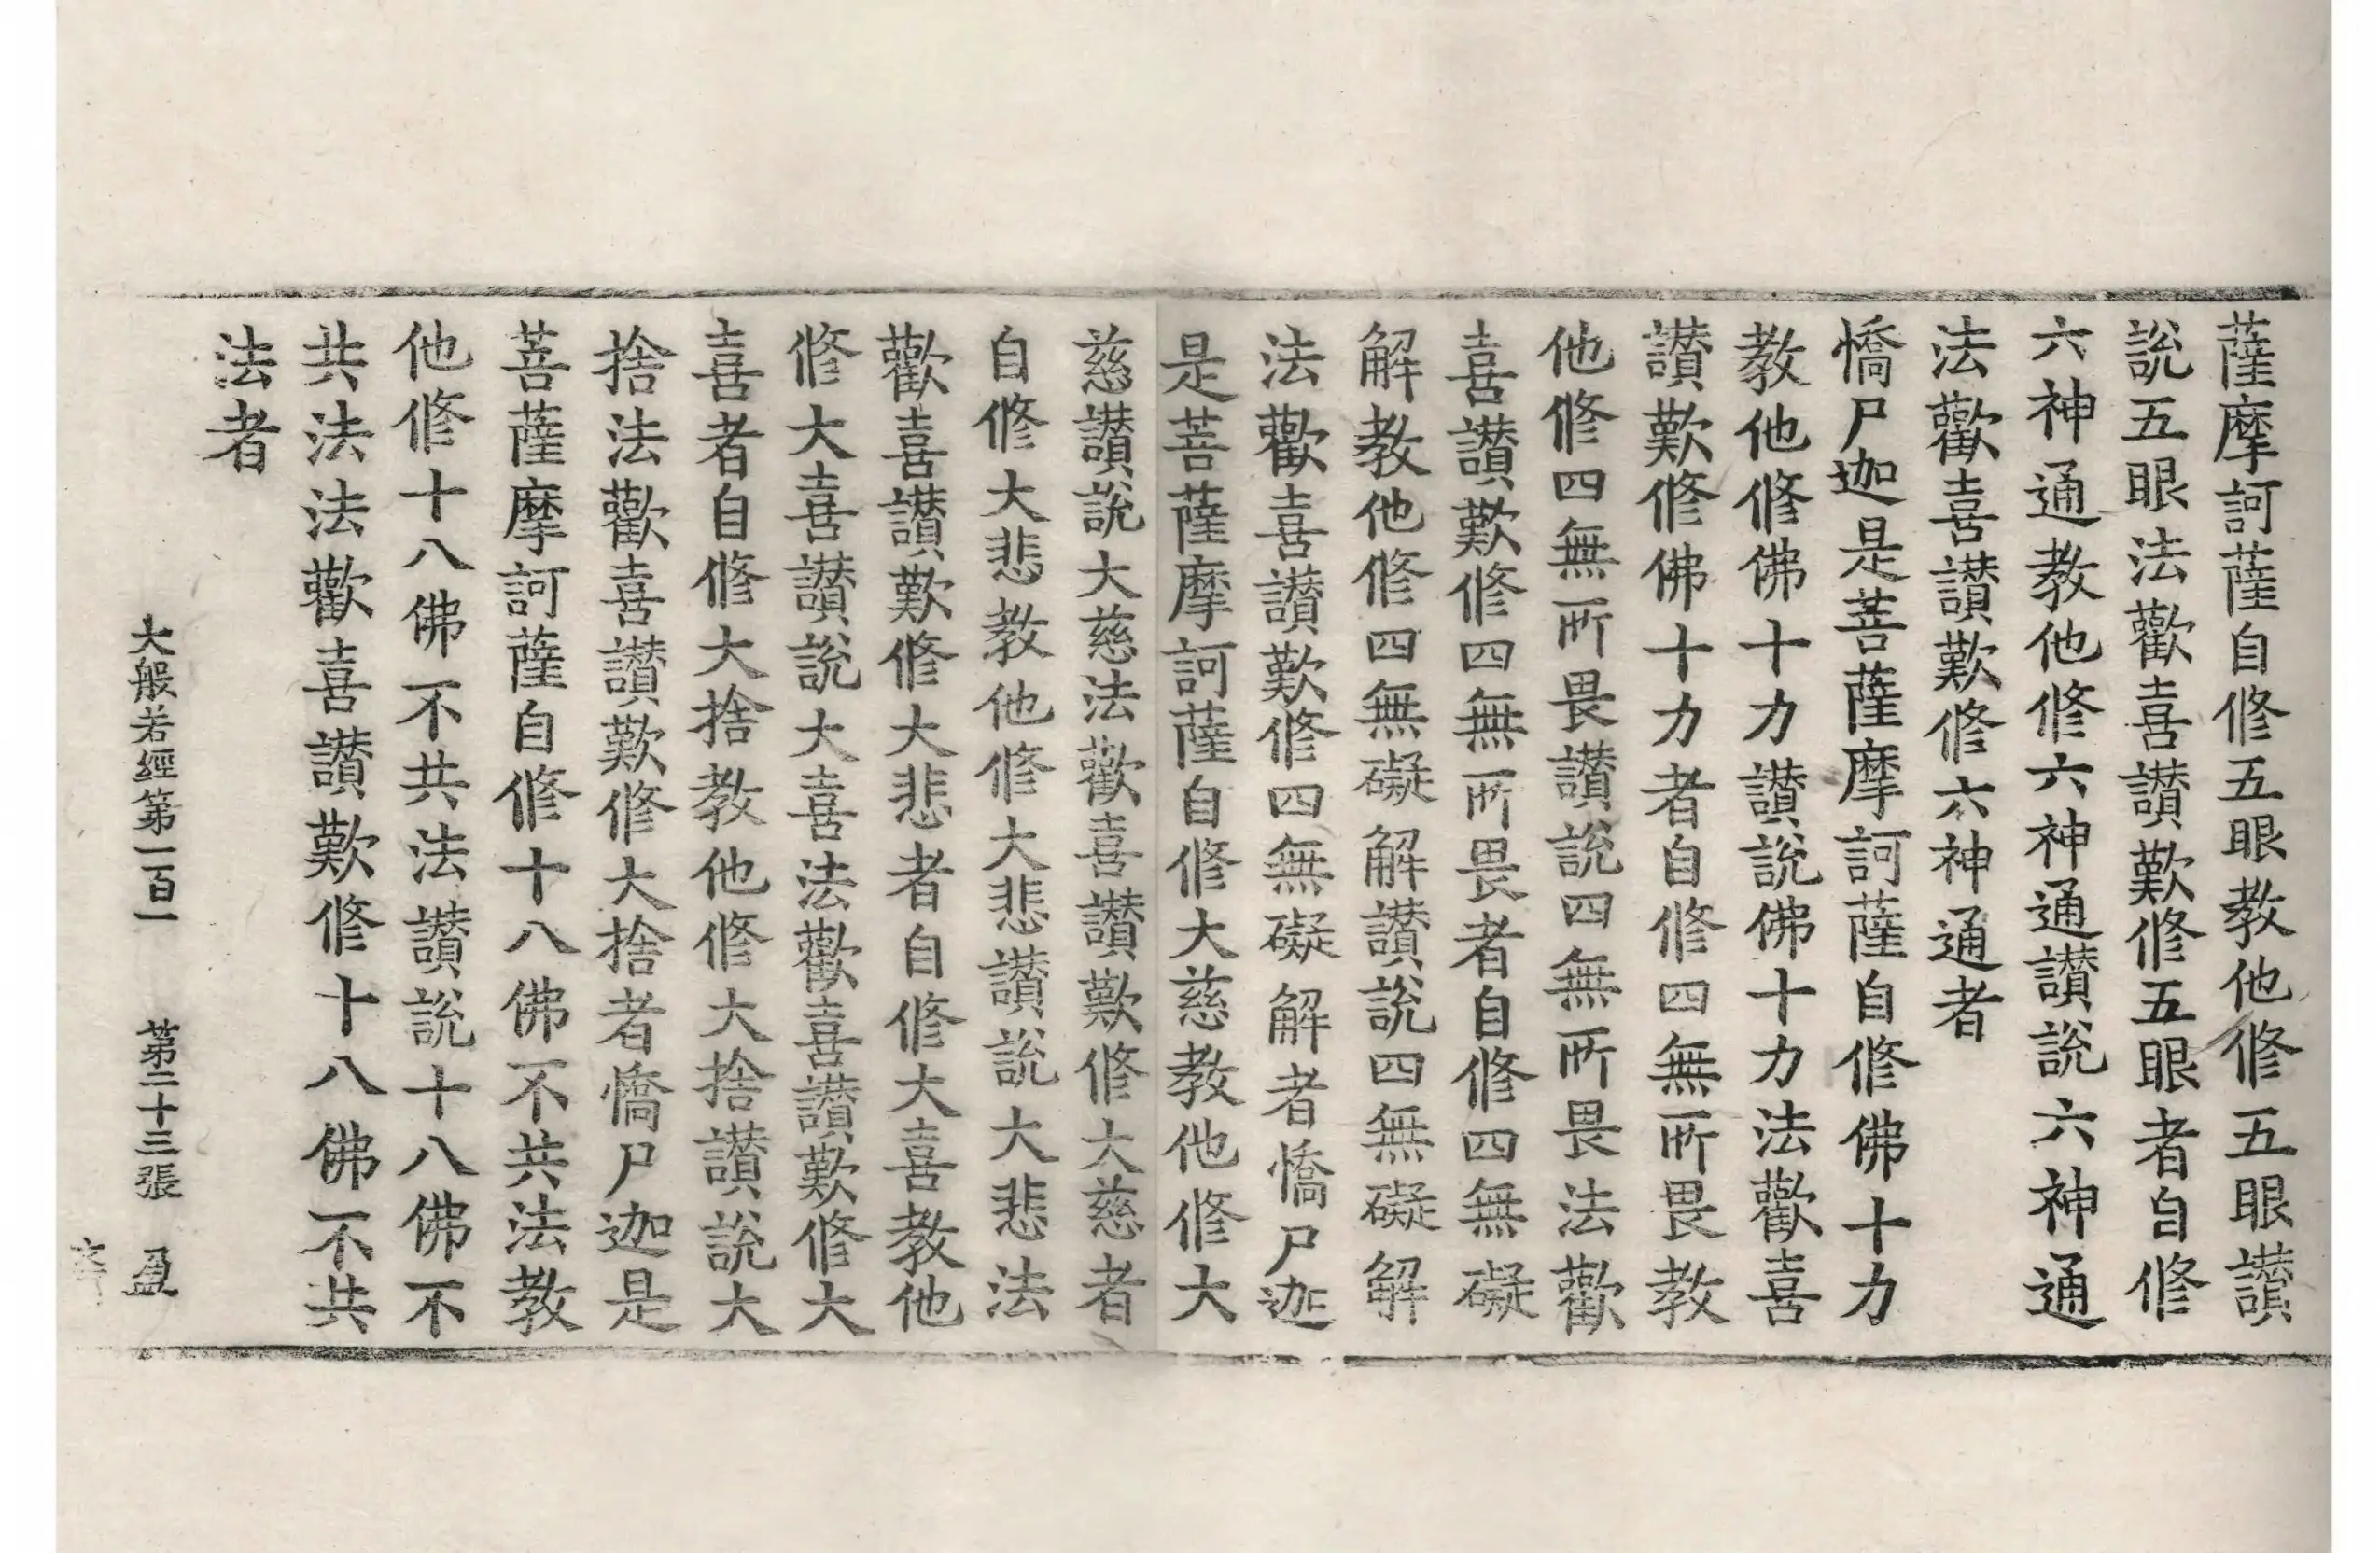 薩摩訶薩自修五眼教他修五眼讃
說五眼法歡喜讃歎修五眼者自修
六神通教他修六神通讃說六神通
法歡喜讃歎修六神通者
憍尸迦是菩薩摩訶薩自修佛十力
教他修佛十力讃說佛十力法歡喜
讃歎修佛十力者自修四無所畏教
他修四無所畏讃說四無所畏法歡
喜讃歎修四無所畏者自修四無礙
解教他修四無礙解讃說四無礙解
法歡喜讃歎修四無礙解者憍尸迦
是菩薩摩訶薩自修大慈教他修大
慈讃說大慈法歡喜讃歎修大慈者
自修大悲教他修大悲讃說大悲法
歡喜讃歎修大悲者自修大喜教他
修大喜讃說大喜法歡喜讃歎修大
喜者自修大捨教他修大捨讃說大
捨法歡喜讃歎修大捨者憍尸迦是
菩薩摩訶薩自修十八佛不共法教
他修十八佛不共法讃說十八佛不
共法法歡喜讃歎修十八佛不共
法者
大般若經第一百一 第二十三張 盈